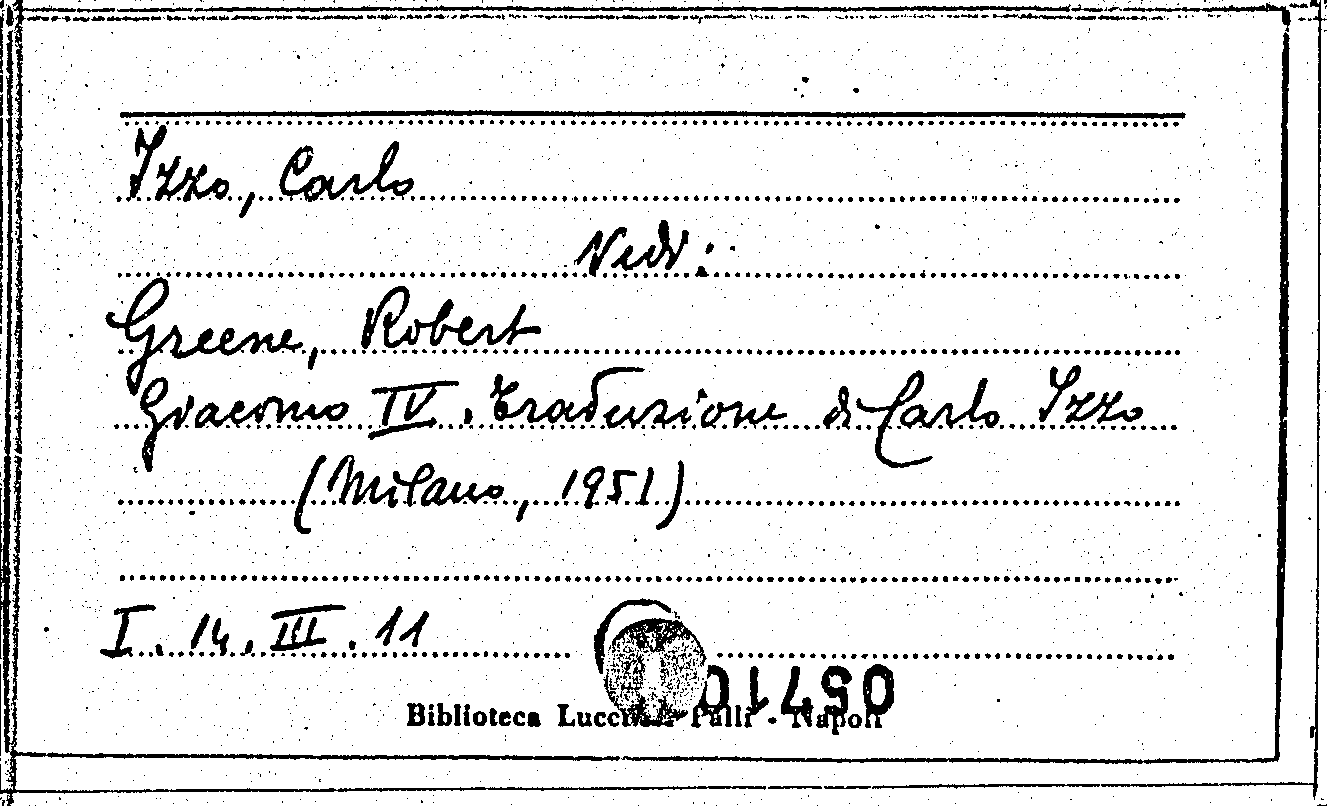 Izzo, Carlo
Vedi:
Greene, Robert
Giacomo IV. Traduzione di Carlo Izzo
(Milano, 1951)
I. 14. III. 11
Biblioteca Lucchesi Palli - Napoli